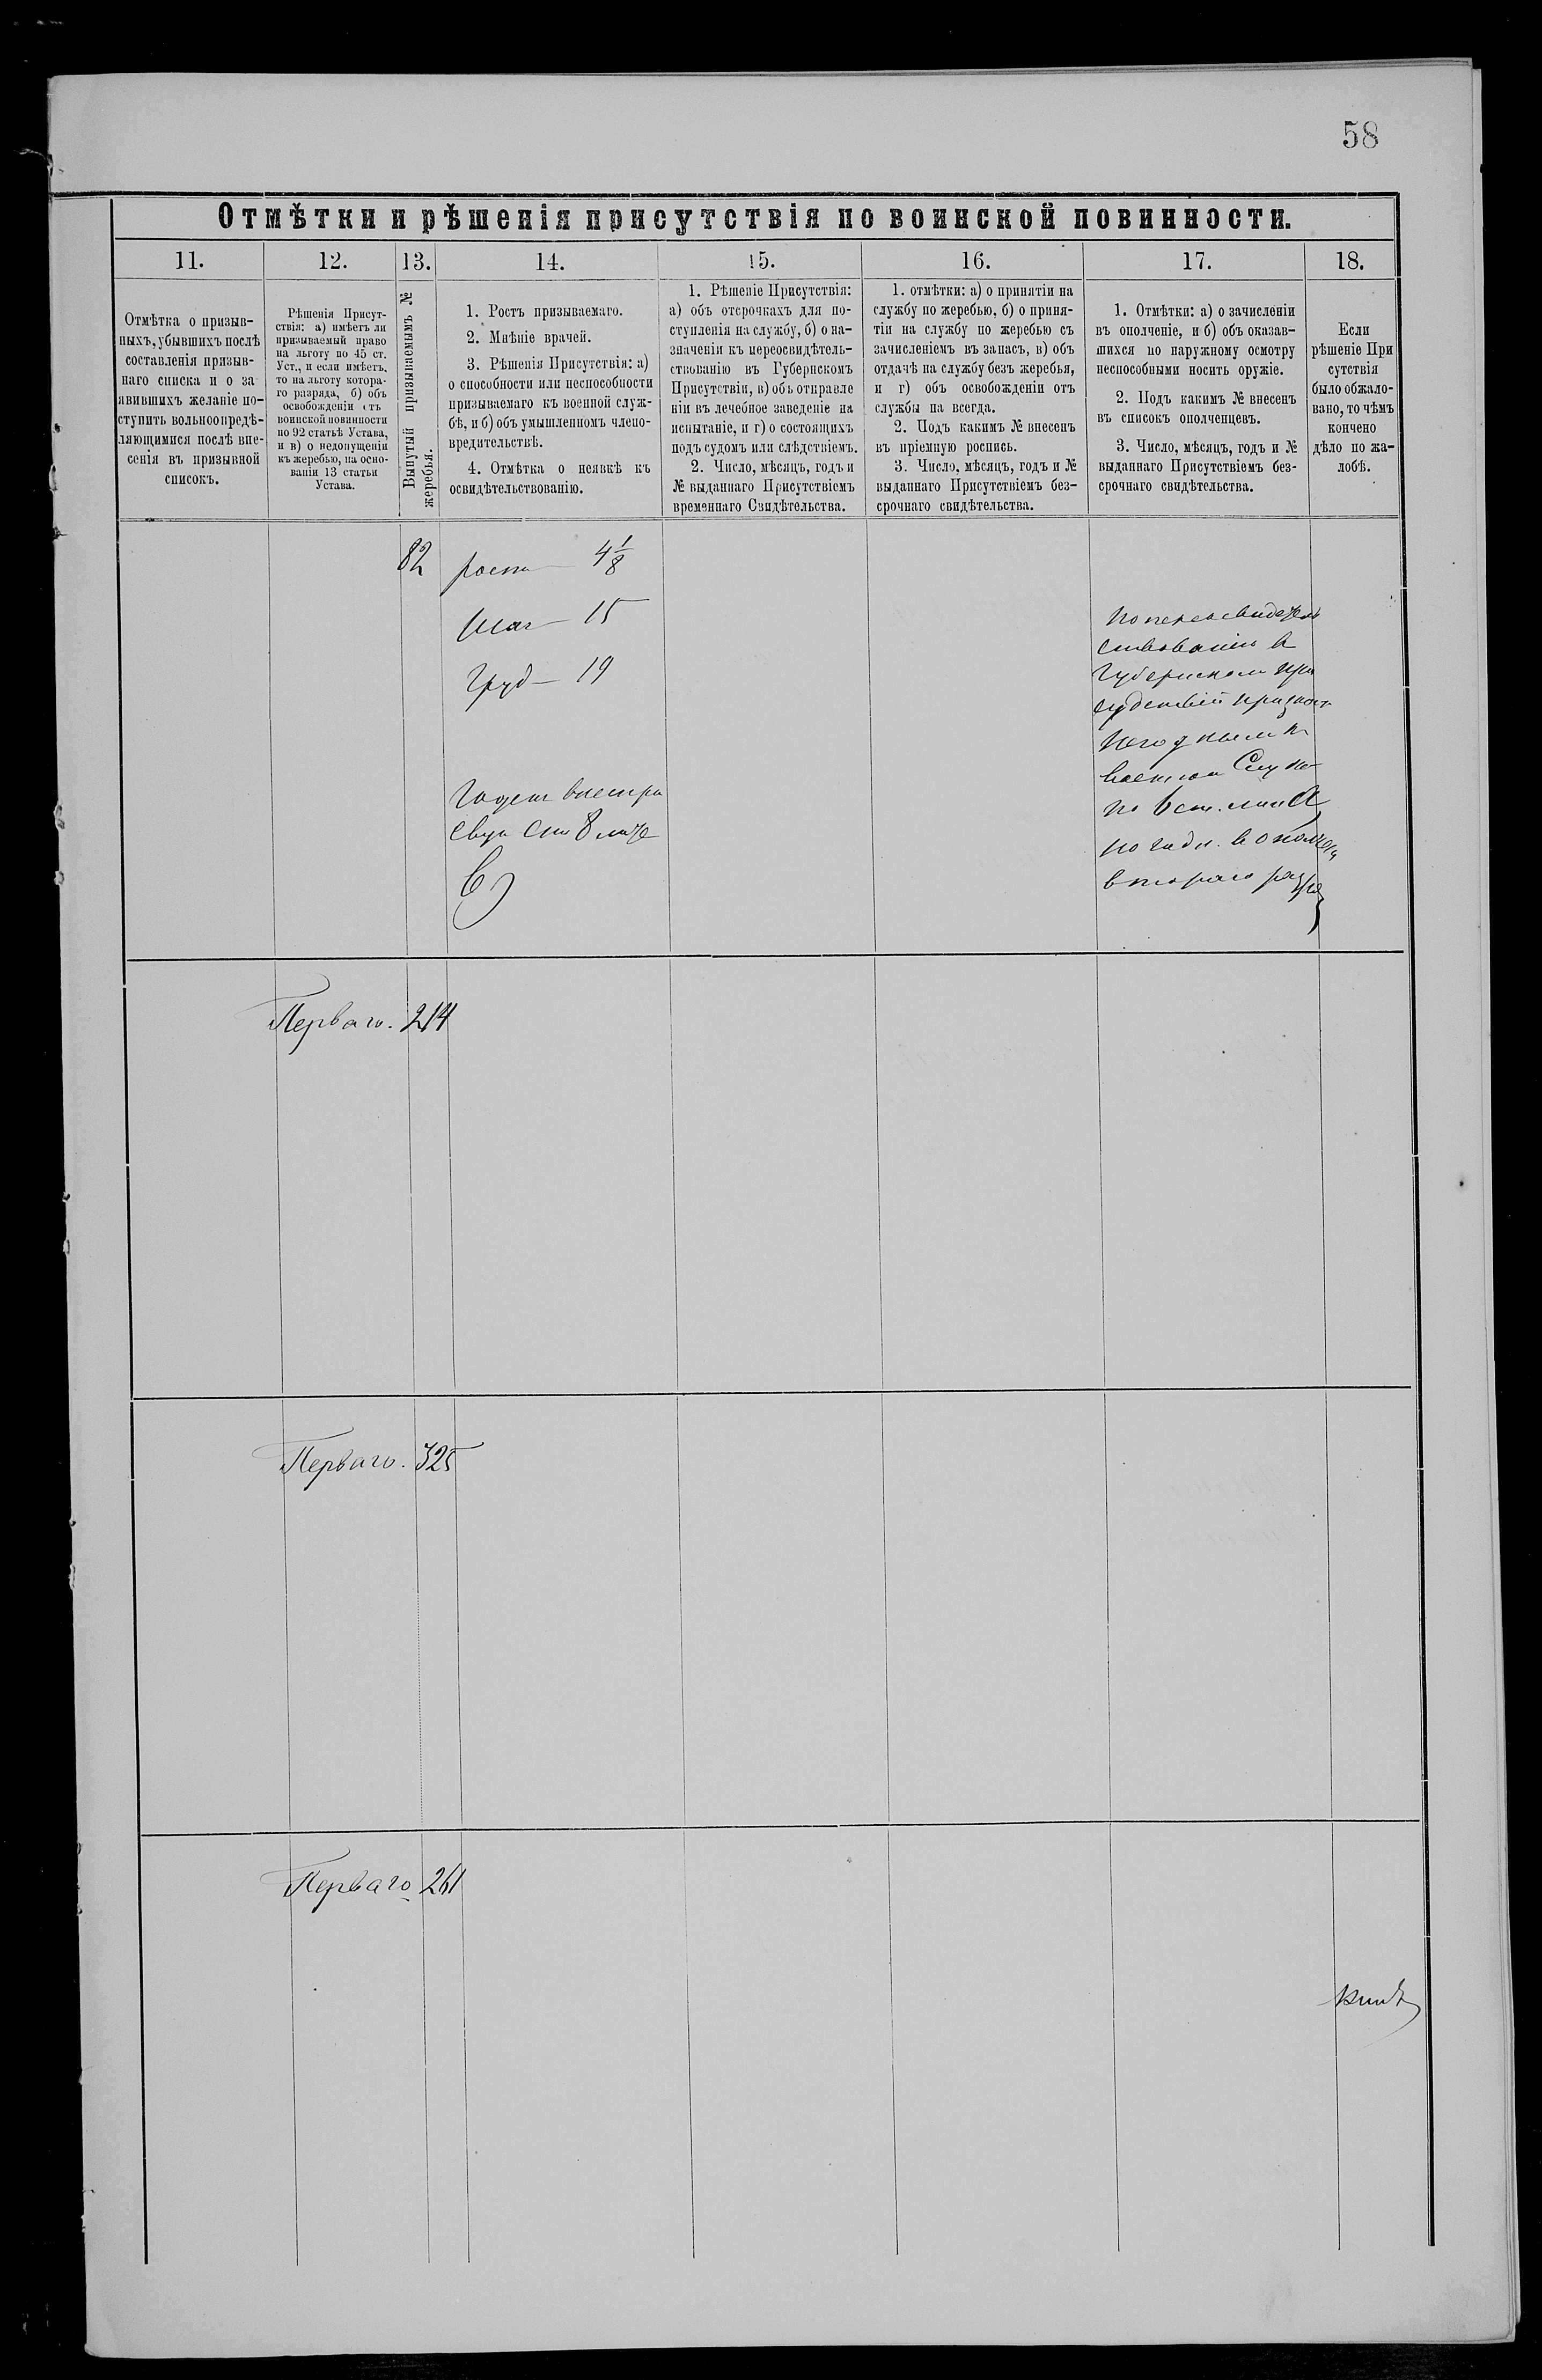 58
Отмѣтки и рѣшенія присутствія по воинской повинности.
11.
12.
13.
14.
15.
16.
17.
18.
Отмѣтка о призыв-
ныхъ, убывшихъ послѣ
составленія призыв-
наго списка и о за
явившихъ желаніе по-
ступить вольноопредѣ-
ляющимися послѣ вне-
сенія въ призывной
списокъ.
Рѣшенія Присут-
ствія: а) имѣетъ ли
призываемый право
на льготу по 45 ст.
Уст., и если имѣетъ,
то на льготу котора-
го разряда, б) объ
освобожденіи отъ
воинской повинности
по 92 статьѣ Устава,
и в) о недопущеніи
къ жеребью, на осно-
ваніи 13 статьи
Устава.
Вынутый призываемымъ №
жеребья.
1. Ростъ призываемаго.
2. Мнѣніе врачей.
3. Рѣшенія Присутствія: а)
о способности или неспособности
призываемаго къ военной служ-
бѣ, и б) объ умышленномъ члено-
вредительствѣ.
4. Отмѣтка о неявкѣ къ
освидѣтельствованію.
1. Рѣшеніе Присутствія:
а) объ отсрочкахъ для по-
ступленія на службу, б) о на-
значеніи къ переосвидѣтель-
ствованію въ Губернскомъ
Присутствіи, в) объ отправле
ніи въ лечебное заведеніе на
испытаніе, и г) о состоящихъ
подъ судомъ или слѣдствіемъ.
2. Число, мѣсяцъ, годъ и
№ выданнаго Присутствіемъ
временнаго Свидѣтельства.
1. отмѣтки: а) о принятіи на
службу по жеребью, б) о приня-
тіи на службу по жеребью съ
зачисленіемъ въ запасъ, в) объ
отдачѣ на службу безъ жеребья,
и г) объ освобожденіи отъ
службы на всегда.
2. Подъ какимъ № внесенъ
въ пріемную роспись.
3. Число, мѣсяцъ, годъ и №
выданнаго Присутствіемъ без-
срочнаго свидѣтельства.
1. Отмѣтки: а) о зачисленіи
въ ополченіе, и б) объ оказав-
шихся по наружному осмотру
неспособными носить оружіе.
2. Подъ какимъ № внесенъ
въ списокъ ополченцевъ.
3. Число, мѣсяцъ, годъ и №
выданнаго Присутствіемъ без-
срочнаго свидѣтельства.
Если
рѣшеніе При
сутствія
было обжало-
вано, то чѣмъ
кончено
дѣло по жа-
лобѣ.
82
ростъ — 4 1/8
15
Груд — 19
Годенъ
8
По переосвидѣтель
ствованіи в
Губернском при
негоднымъ к
военной Служ
по 6 ст. лит А
второго разря
Перваго. 214
Перваго. 325
Перваго 261